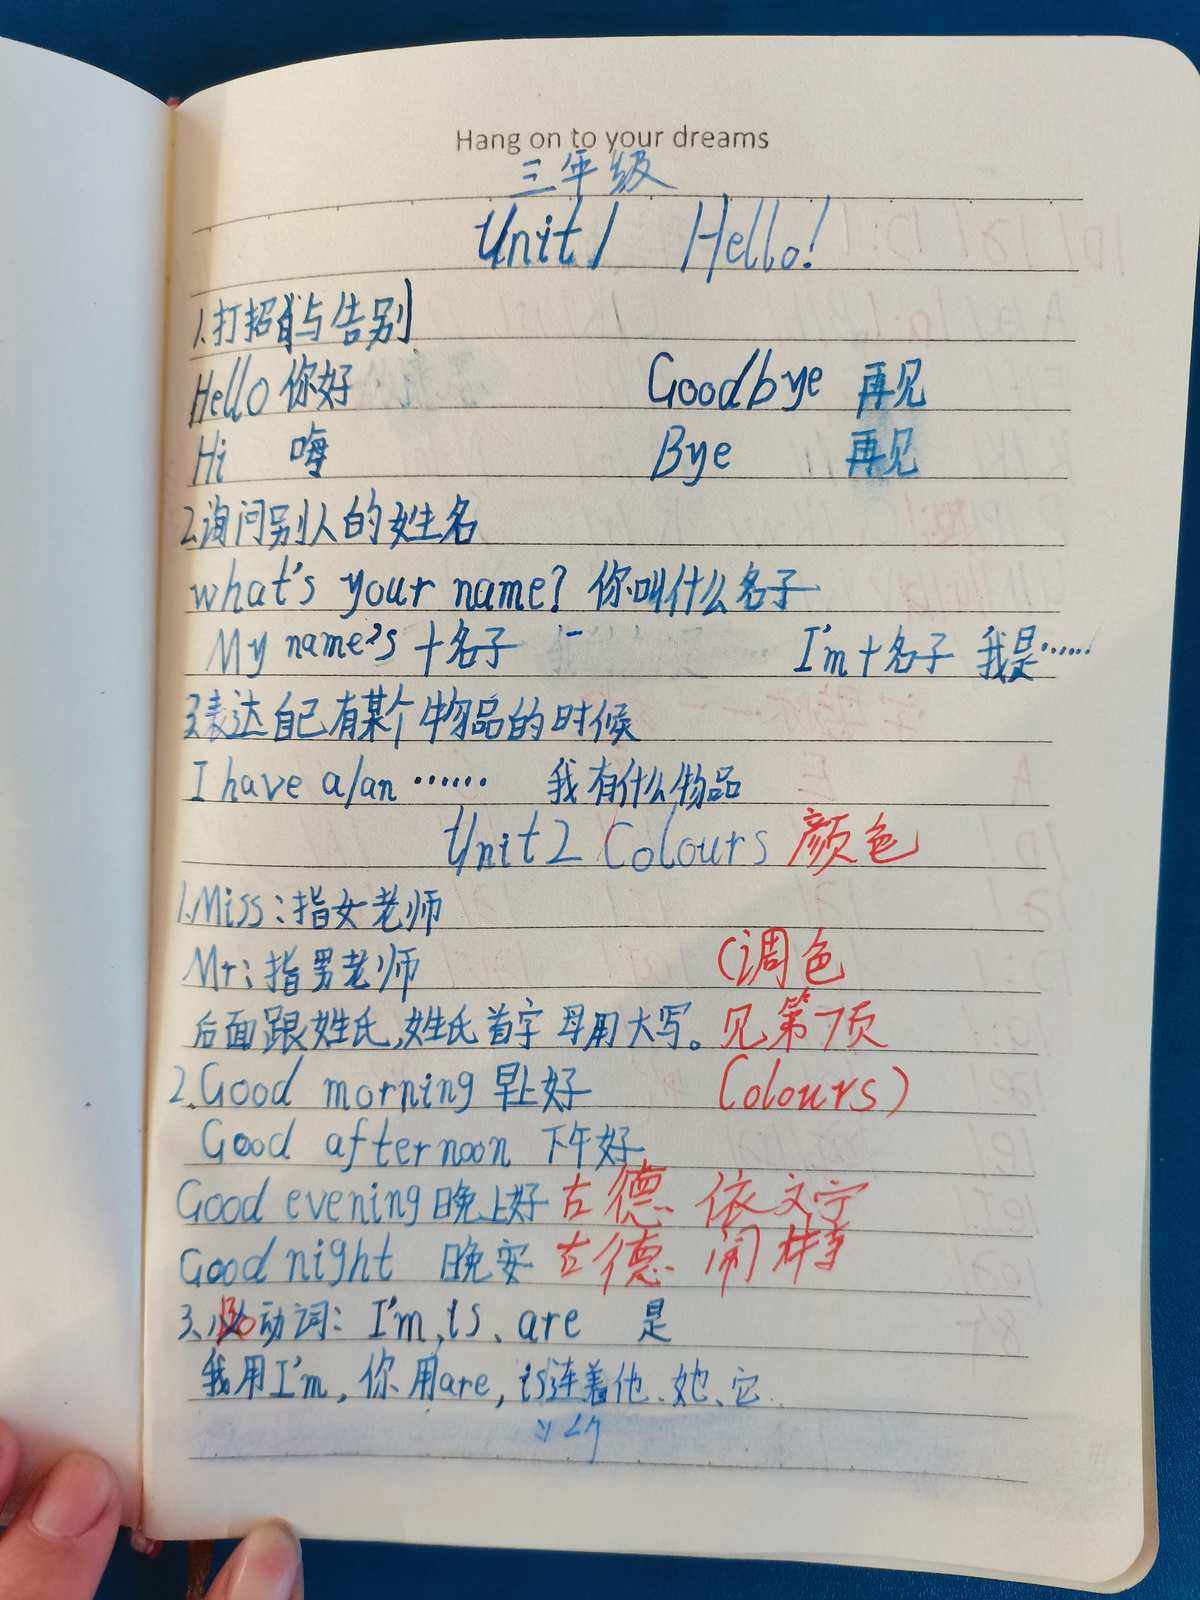 Hang on to your dreams
三年级
Unit 1 Hello!
1.打招与告别
Hello 你好 Goodbye 再见
Hi 嗨 Bye 再见
2.询问别人的姓名
what's your name? 你叫什么名子
My name's 十名子 I'm十名子 我是……
3.表达自己有某个物品的时候
I have a/an …… 我有什么物品
Unit 2 Colours 颜色
1.Miss:指女老师
Mr:指男老师 (调色
后面跟姓氏,姓氏首字母用大写。见第7页
2.Good morning 早上好 Colours)
Good afternoon 下午好
Good evening 晚上好 古德 依文宁
Good night 晚安 古德 闹特
3、动词: I'm、is、are 是
我用I'm,你用are,is连着他、她、它